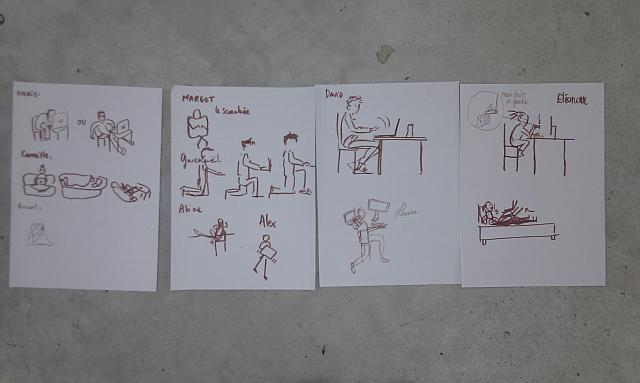 ANAÏS:
OU
Camille.
Vincent.
MARGOT
le scarabée
Gwenaël
Alice
Alex
DAVID
Laura
main droite
ou gauche
Eléonore